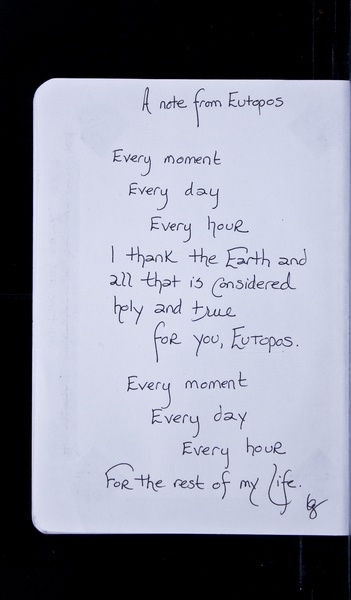 A note from Eutopos
Every moment
Every day
Every hour
I thank the Earth and
all that is considered
holy and true
for you, Eutopos.
Every moment
Every day
Every hour
For the rest of my life.